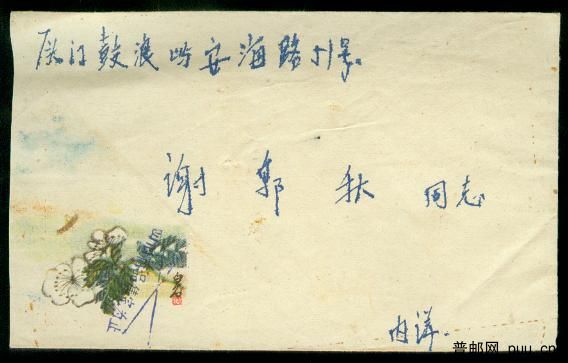 厦门鼓浪屿安海路51号。
谢郭秋 同志
白石
内详.
普邮网 puu.cn